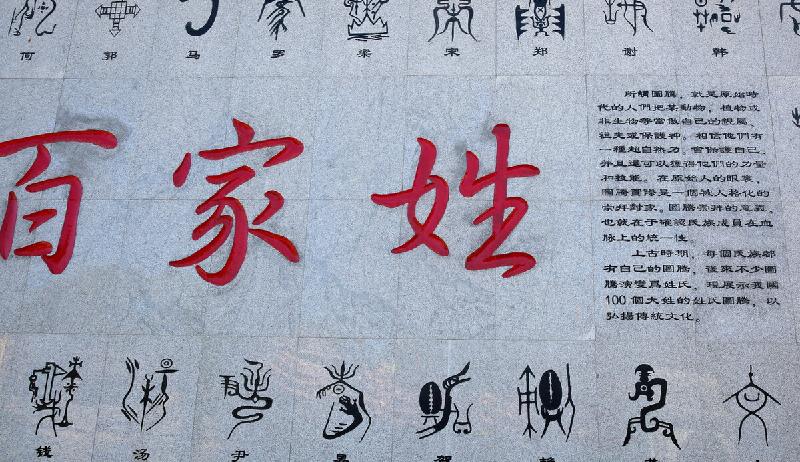 何 郭 马 罗 梁 宋 郑 谢 韩
百家姓
所謂圖騰，就是原始時
代的人們把某動物，植物或
非生物等當做自己的親屬、
祖先或保護神。相信他們有
一種超自然力，會保護自己，
并且還可以獲得他們的力量
和技能。在原始人的眼裏，
圖騰實際是一個被人格化的
崇拜對象。圖騰崇拜的意義，
也就在于確認民族成員在血
脉上的统一性。
上古時期，每個民族都
有自己的圖騰，後來不少圖
騰演變爲姓氏，現展示我國
100個大姓的姓氏圖騰，以
弘揚傳統文化。
钱 汤 尹